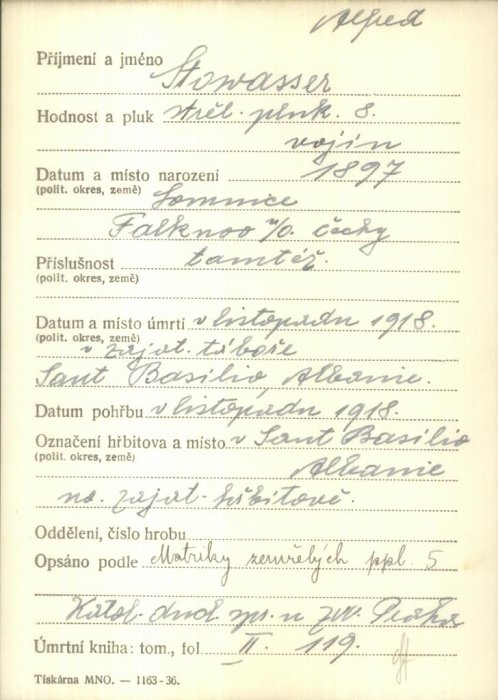 Alfred
Příjmení a jméno Stowasser
Hodnost a pluk střel. pluk. 8.
vojín
Datum a místo narození 1897
(polit. okres, země) Lomnice
Falknov n/O. Čechy
Příslušnost tamtéž.
(polit. okres, země)
Datum a místo úmrtí v listopadu 1918.
(polit. okres, země) v zajat. táboře
Sant Basilio, Albanie.
Datum pohřbu v listopadu 1918.
Označení hřbitova a místo v Sant Basilio
(polit. okres, země) Albanie
na zajat. hřbitově.
Oddělení, číslo hrobu
Opsáno podle Matriky zemřelých ppl. 5
Katol. duch. spr. u ZVV. Praha
Úmrtní kniha: tom., fol II. 119.
Tiskárna MNO. — 1163-36.